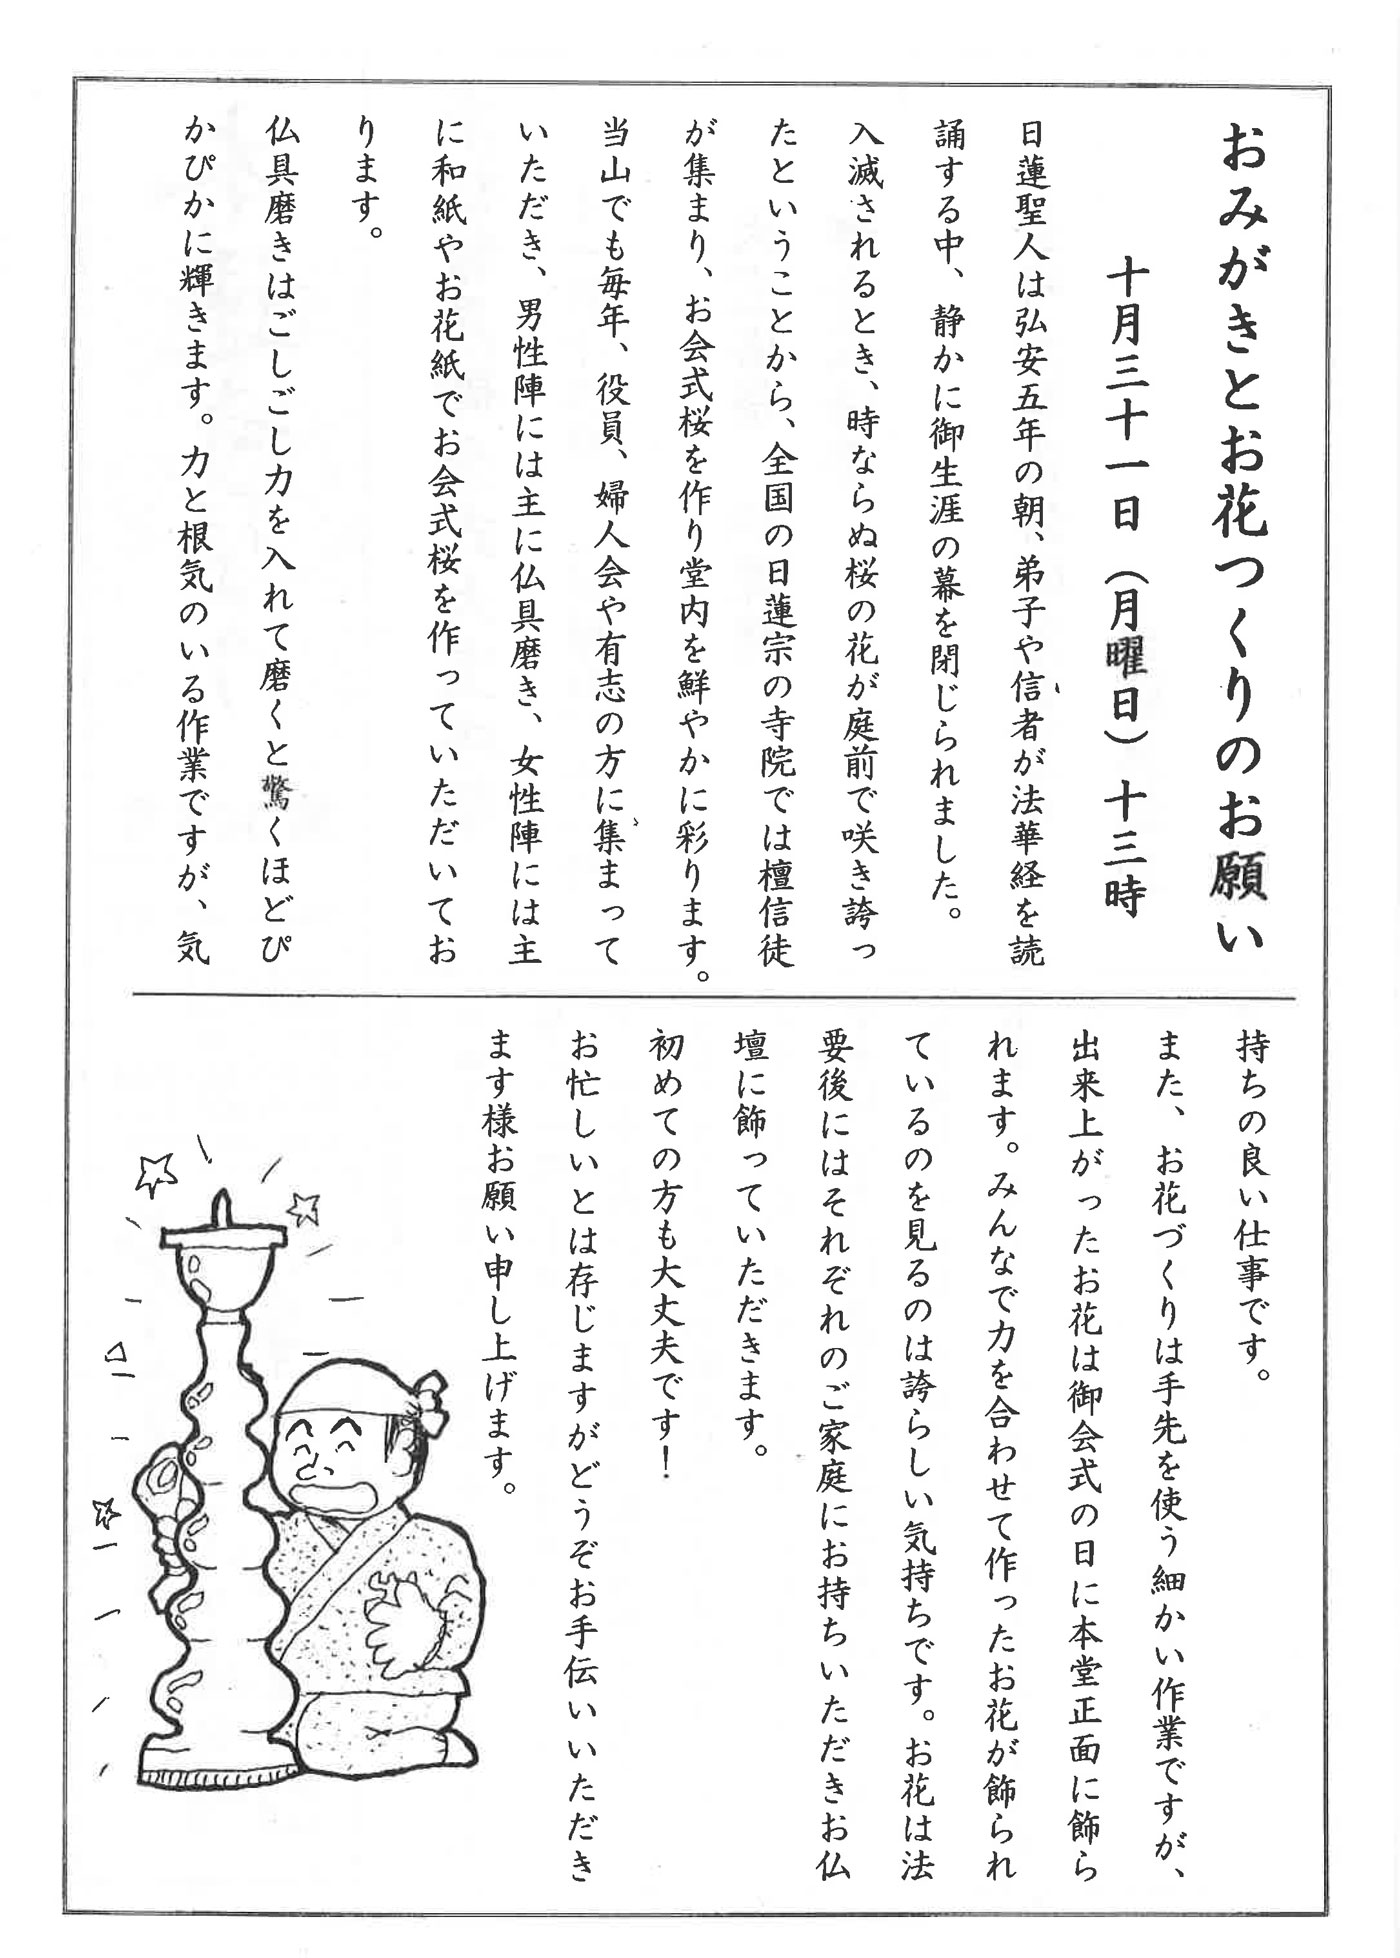 おみがきとお花つくりのお願い
十月三十一日（月曜日）十三時
日蓮聖人は弘安五年の朝、弟子や信者が法華経を読
誦する中、静かに御生涯の幕を閉じられました。
入滅されるとき、時ならぬ桜の花が庭前で咲き誇っ
たということから、全国の日蓮宗の寺院では檀信徒
が集まり、お会式桜を作り堂内を鮮やかに彩ります。
当山でも毎年、役員、婦人会や有志の方に集まって
いただき、男性陣には主に仏具磨き、女性陣には主
に和紙やお花紙でお会式桜を作っていただいてお
ります。
仏具磨きはごしごし力を入れて磨くと驚くほどぴ
かぴかに輝きます。力と根気のいる作業ですが、気
持ちの良い仕事です。
また、お花づくりは手先を使う細かい作業ですが、
出来上がったお花は御会式の日に本堂正面に飾ら
れます。みんなで力を合わせて作ったお花が飾られ
ているのを見るのは誇らしい気持ちです。お花は法
要後にはそれぞれのご家庭にお持ちいただきお仏
壇に飾っていただきます。
初めての方も大丈夫です！
お忙しいとは存じますがどうぞお手伝いいただき
ます様お願い申し上げます。